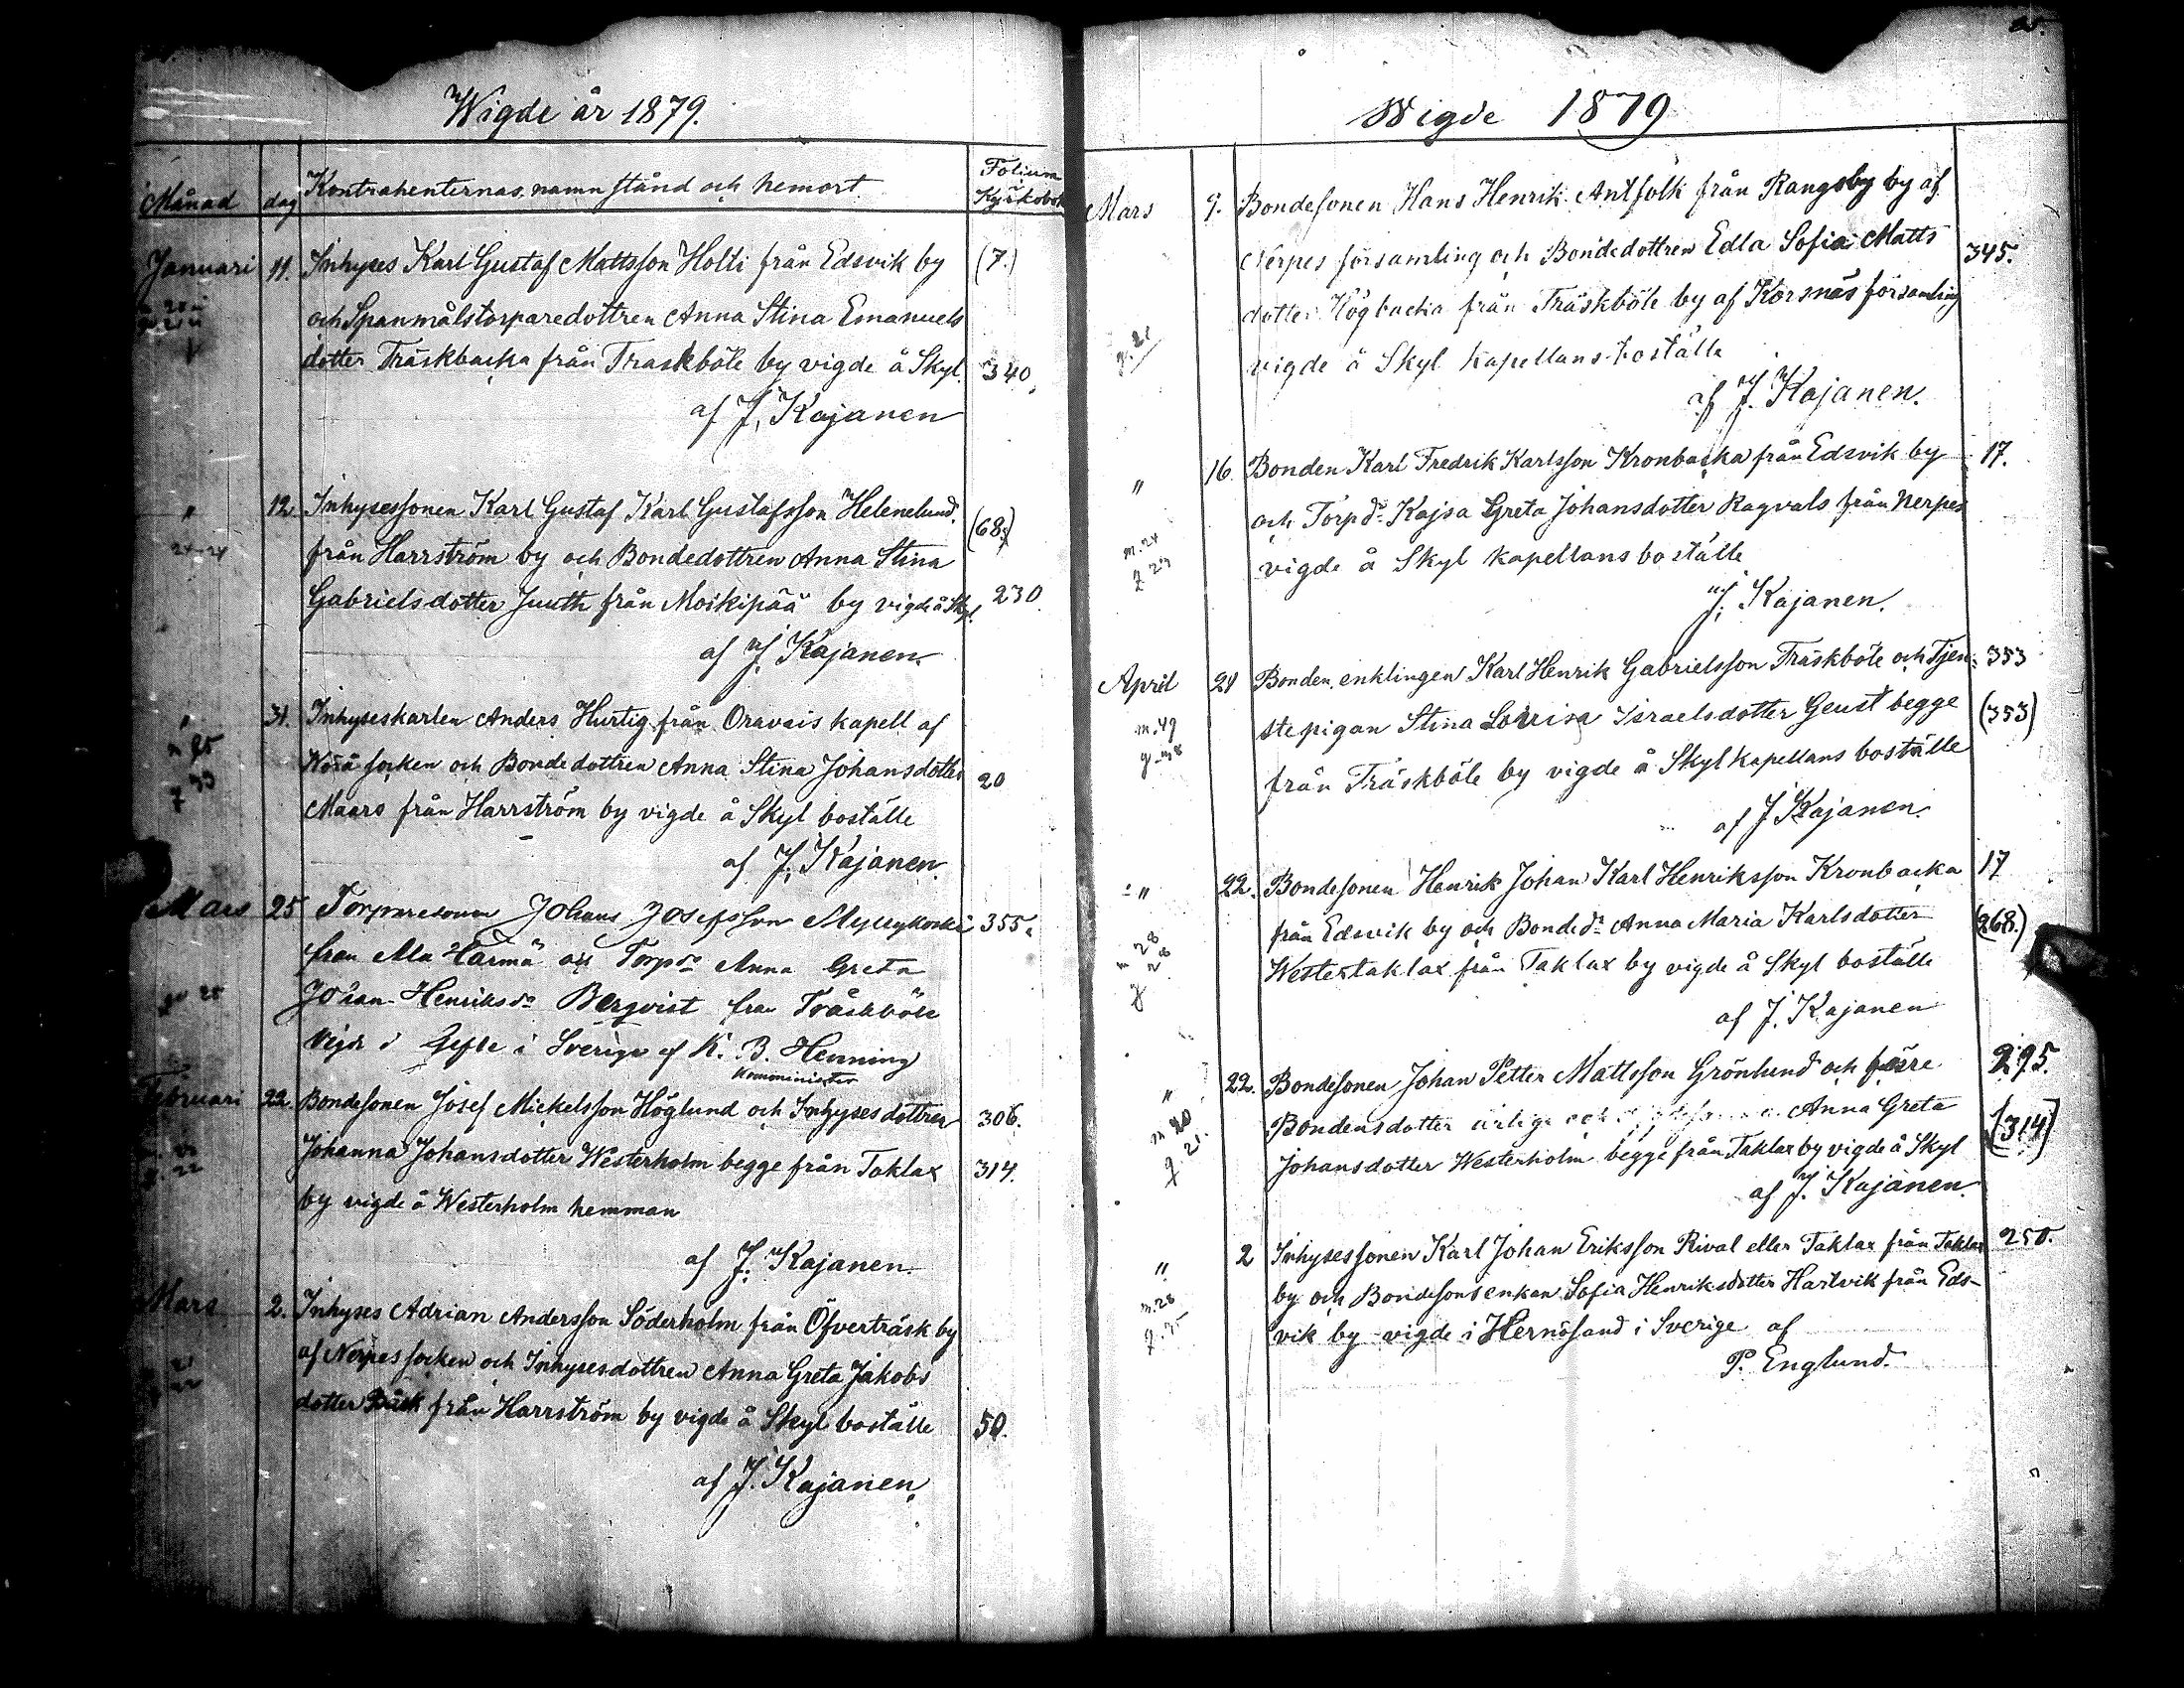 Wigde år 1879.
Månad dag Kontrahenternas namn stånd och hemort Folium Kyrkobok
Januari 11. Inhyses Karl Gustaf Mattsson Holti från Edsvik by (7.)
och Spanmålstorparedottren Anna Stina Emanuels
dotter Träskbacka från Traskböle by vigde å Skyl. 340.
af J. Kajanen
" 12 Inhysessonen Karl Gustaf Karl Gustafsson Helenelund. (68.)
från Harrström by och Bondedottren Anna Stina
Gabrielsdotter Juuth från Moikipää by vigde å Skyl. 230.
af J. Kajanen.
" 31. Inhyseskarlen Anders Hurtig från Oravais kapell af
Wörå socken och Bondedottren Anna Stina Johansdotter 20
Maars från Harrström by vigde å Skyl boställe
af J. Kajanen.
Mars 25 Torparesonen Johans Josefsson Myllykoski 355.
från Ala Härmä och Torpdr Anna Greta
Johan Henriksdr Berqvist från Träskböle
vigde i Gefle i Sverige af K. B. Henning
Komminister
Februari 22. Bondesonen Josef Mickelsson Höglund och Inhysesdottren 306.
Johanna Johansdotter Westerholm begge från Taklax 314.
by vigde å Westerholm hemman
af J. Kajanen.
Mars 2. Inhyses Adrian Andersson Söderholm från Öfverträsk by
af Nerpes socken och Inhysesdottren Anna Greta Jakobs
dotter Bäck från Harrström by vigde å Skyl boställe 50.
af J. Kajanen.
Wigde 1879
Mars 9. Bondesonen Hans Henrik Antfolk från Rangsby by af
Nerpes församling och Bondedottren Edla Sofia Matts 345.
dotter Högbacka från Träskböle by af Korsnäs församling
vigde å Skyl kapellans boställe
af J. Kajanen.
" 16 Bonden Karl Fredrik Karlsson Kronbacka från Edsvik by 17.
och Torpdr Kajsa Greta Johansdotter Ragvals från Nerpes
m. 24
vigde å Skyl kapellans boställe
J. Kajanen.
April 24 Bonden enklingen Karl Henrik Gabrielsson Träskböle och Tjen- 353
m. 49
stepigan Stina Lovisa Israelsdotter Geust begge (353)
från Träskböle by vigde å Skyl kapellans boställe
af J Kajanen.
" 22. Bondesonen Henrik Johan Karl Henriksson Kronbacka 17
från Edsvik by och Bondedr Anna Maria Karlsdotter (268.)
Westertaklax från Taklax by vigde å Skyl boställe
af J. Kajanen
" 22. Bondesonen Johan Petter Mattsson Grönlund och 295.
Bondensdotter Anna Greta (314)
g 21.
Johansdotter Westerholm begge från Taklax by vigde å Skyl
af J. Kajanen.
" 2 Inhysessonen Karl Johan Eriksson Rival eller Taklax från Taklax 250.
by och Bondesonsenkan Sofia Henriksdotter Hartvik från Eds-
vik by vigde i Hernösand i Sverige af
P. Englund.